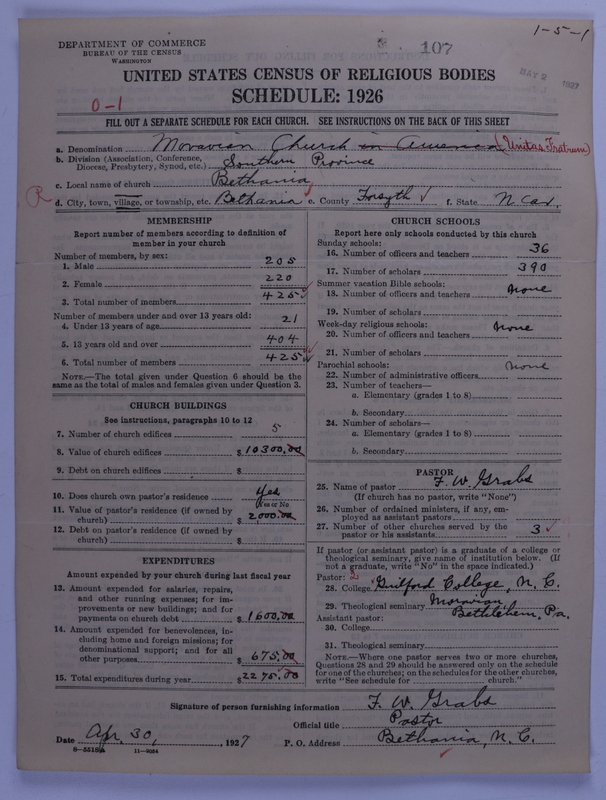 1-5-1
DEPARTMENT OF COMMERCE
BUREAU OF THE CENSUS
WASHINGTON
107
MAY 2 1927
UNITED STATES CENSUS OF RELIGIOUS BODIES
SCHEDULE: 1926
0-1
FILL OUT A SEPARATE SCHEDULE FOR EACH CHURCH. SEE INSTRUCTIONS ON THE BACK OF THIS SHEET
a. Denomination Moravian Church in America (Unitas Fratrum)
b. Division (Association, Conference, Diocese, Presbytery, Synod, etc.) Southern Province
c. Local name of church Bethania
R d. City, town, village, or township, etc. Bethania e. County Forsyth f. State N. Car.
MEMBERSHIP
Report number of members according to definition of
member in your church
Number of members, by sex:
1. Male 205
2. Female 220
3. Total number of members 425
Number of members under and over 13 years old:
4. Under 13 years of age 21
5. 13 years old and over 404
6. Total number of members 425
NOTE.—The total given under Question 6 should be
same as the total of males and females given under Question 3.
CHURCH BUILDINGS
See instructions, paragraphs 10 to 12
7. Number of church edifices 5
8. Value of church edifices $ 10300.00
9. Debt on church edifices $
10. Does church own pastor's residence Yes
(Yes or No)
11. Value of pastor's residence (if owned by
church) $ 2000.00
12. Debt on pastor's residence (if owned by
church) $
EXPENDITURES
Amount expended by your church during last fiscal year
13. Amount expended for salaries, repairs,
and other running expenses; for im-
provements or new buildings; and for
payments on church debt $ 1600.00
14. Amount expended for benevolences, in-
cluding home and foreign missions; for
denominational support; and for all
other purposes $ 675.00
15. Total expenditures during year $ 2275.00
CHURCH SCHOOLS
Report here only schools conducted by this church
Sunday schools:
16. Number of officers and teachers 36
17. Number of scholars 390
Summer vacation Bible schools:
18. Number of officers and teachers None
19. Number of scholars
Week-day religious schools:
20. Number of officers and teachers None
21. Number of scholars
Parochial schools: None
22. Number of administrative officers
23. Number of teachers—
a. Elementary (grades 1 to 8)
b. Secondary
24. Number of scholars—
a. Elementary (grades 1 to 8)
b. Secondary
PASTOR
25. Name of pastor F. W. Grabs
(If church has no pastor, write "None")
26. Number of ordained ministers, if any, em-
ployed as assistant pastors
27. Number of other churches served by the
pastor or his assistants 3
If pastor (or assistant pastor) is a graduate of a college or
theological seminary, give name of institution below. (If
not a graduate, write "No" in the space indicated.)
Pastor: 2
28. College Guilford College, N. C.
29. Theological seminary Moravian, Bethlehem, Pa.
Assistant pastor:
30. College
31. Theological seminary
NOTE.—Where one pastor serves two or more churches,
Questions 28 and 29 should be answered only on the schedule
for one of the churches; on the schedules for the other churches,
write "See schedule for church."
Signature of person furnishing information F. W. Grabs
Official title Pastor
Date Apr. 30, 1927 P. O. Address Bethania, N. C.
11-9034